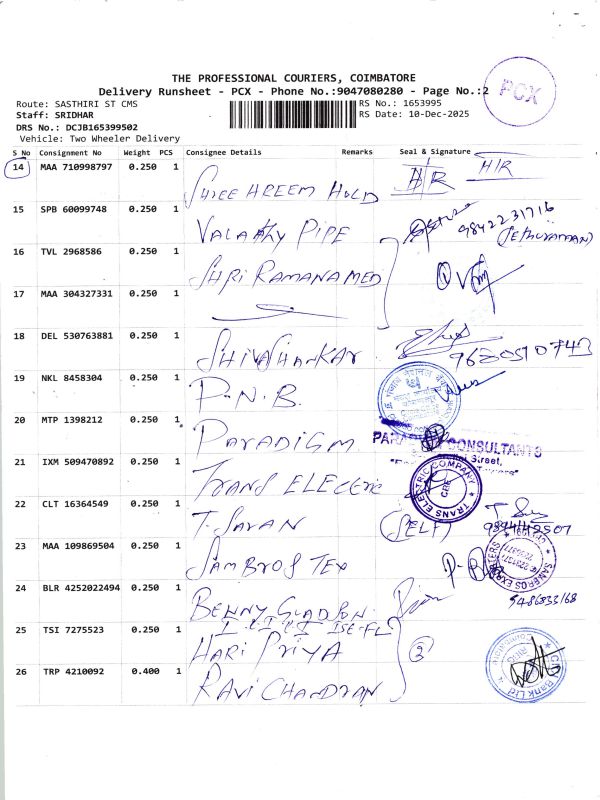 THE PROFESSIONAL COURIERS, COIMBATORE
Delivery Runsheet - PCX - Phone No.:9047080280 - Page No.:2
PCX
Route: SASTHIRI ST CMS
RS No.: 1653995
Staff: SRIDHAR
RS Date: 10-Dec-2025
DRS No.: DCJB165399502
Vehicle: Two Wheeler Delivery
S No Consignment No Weight PCS Consignee Details Remarks Seal & Signature
14 MAA 710998797 0.250 1 SHREE HREEM HOLD H/R H/R
15 SPB 60099748 0.250 1 VALAAHY PIPE 9842231716
16 TVL 2968586 0.250 1 SHRI RAMANA MED
17 MAA 304327331 0.250 1
18 DEL 530763881 0.250 1 SHIVAShANKAR
19 NKL 8458304 0.250 1 P.N.B.
20 MTP 1398212 0.250 1 PARADIGM
CONSULTANTS
Street,
21 IXM 509470892 0.250 1 TRANS ELECTRC
TRANS ELECTRIC COMPANY
CBE
22 CLT 16364549 0.250 1 T. SARAN (SELF)
23 MAA 109869504 0.250 1 SAMBROS TEX
24 BLR 4252022494 0.250 1 BENNY GLADSON
9486833168
25 TSI 7275523 0.250 1 HARI PRIYA
26 TRP 4210092 0.400 1 RAVI CHANDRAN
Bank Ltd